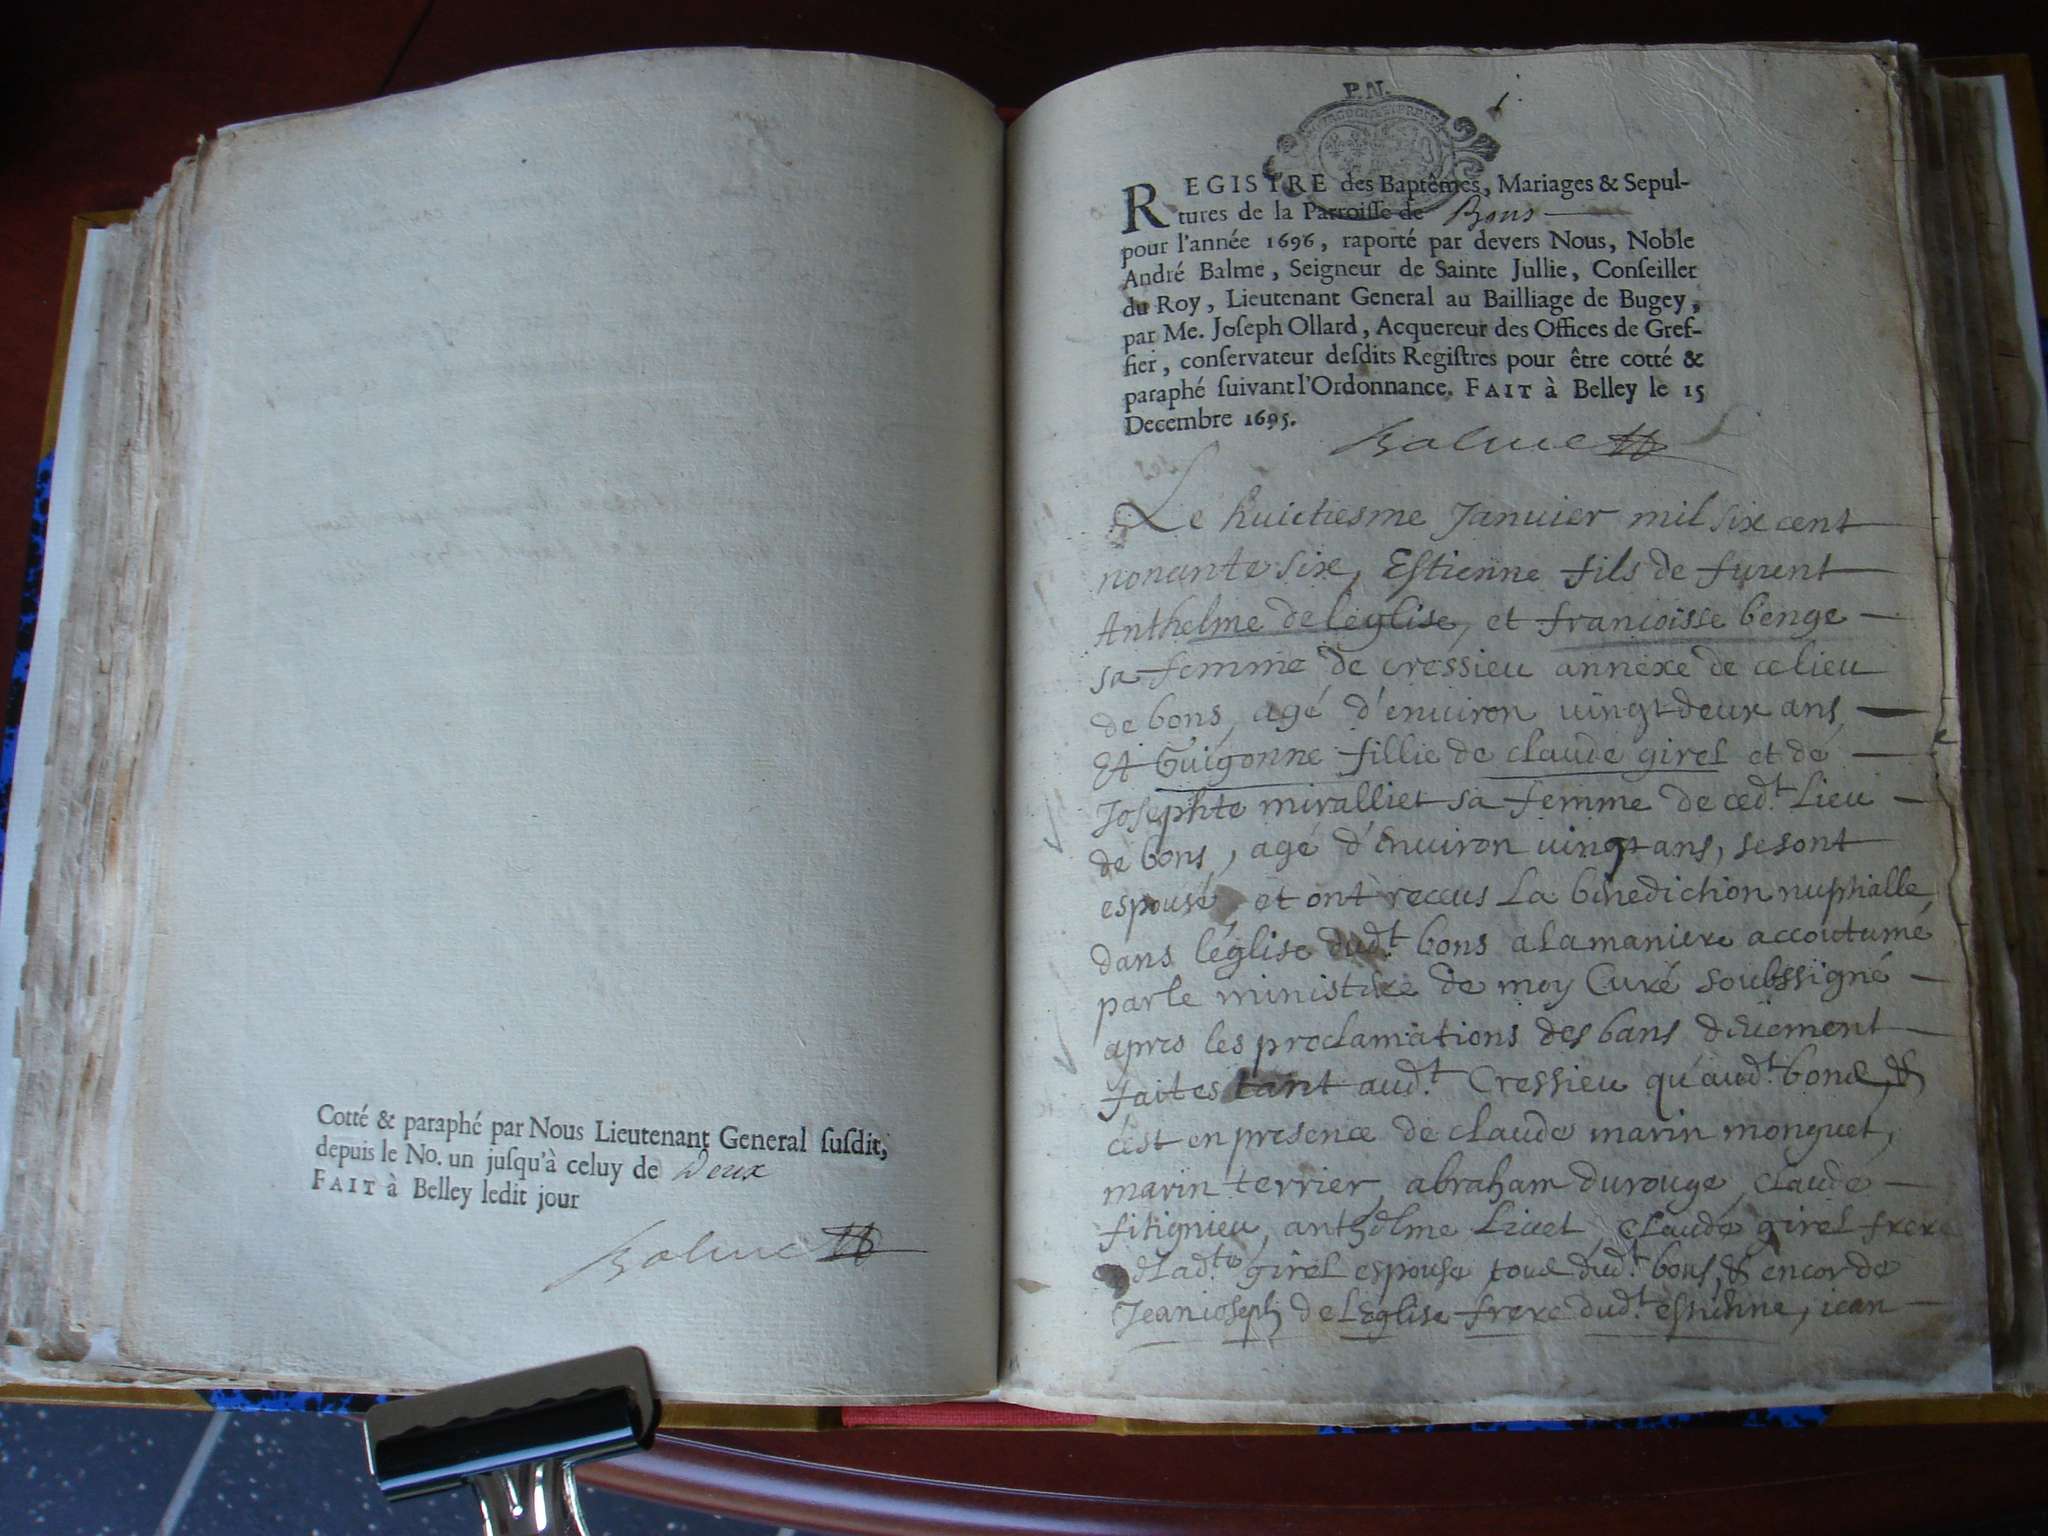 Cotté & paraphé par Nous Lieutenant General ſuſdit,
depuis le No. un juſqu'à celuy de Deux
FAIT à Belley ledit jour
Balme
P. N.
REGISTRE des Baptêmes, Mariages & Sepul-
tures de la Parroiſſe de Bons
pour l'année 1696, raporté par devers Nous, Noble
André Balme, Seigneur de Sainte Jullie, Conſeiller
du Roy, Lieutenant General au Bailliage de Bugey,
par Me. Joſeph Ollard, Acquereur des Offices de Gref-
fier, conſervateur deſdits Regiſtres pour être cotté &
paraphé ſuivant l'Ordonnance. FAIT à Belley le 15
Decembre 1695.
Balme
Le huictiesme Januier mil six cent
nonante six, Estienne fils de furent
Anthelme de leglise, et francoisse benge
sa femme de cressieu annexe de ce lieu
de bons, agé d'enuiron uingt deux ans
Et Guigonne fillie de claude girel et de
Josephte miralliet sa femme de ced.t Lieu
de bons, agé d'enuiron uingt ans, se sont
espousé et ont receus La benediction nuptialle
dans léglise dud.t bons a la maniere accoutumé
par le ministere de moy Curé soubssigné
apres les proclamations des bans düement
faites tant aud.t Cressieu qu'aud.t bons, &
c'est en presence de claude marin monguet,
marin terrier, abraham durouge, claude
fitignieu, anthelme Liuet, claude girel frere
d Lad.te girel espouse tous dud.t bons, & encor de
Jean ioseph de lEglise frere dud.t estienne, iean